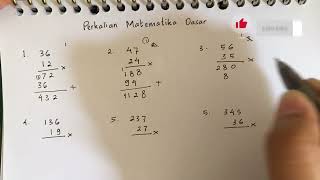 Perkalian Matematika Dasar
1. 36
12 x
72
36 +
432
2. 47
24 x
188
94 +
1128
3. 56
35 x
280
8
4. 136
19 x
5. 237
27 x
5. 345
36 x